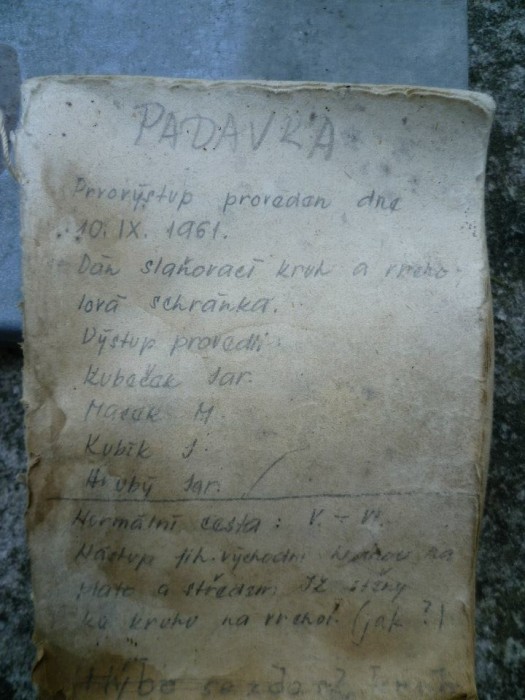 PADAVKA
Prvovýstup proveden dne
10. IX. 1961.
Dán slaňovací kruh a vrcho
lová schránka.
Výstup provedli:
Kubeček Jar.
Macek M.
Kubík J.
Hrubý Jar.
Normální cesta: V. – VI.
Nástup jih. východní hranou na
a středem JZ stěny
ke kruhu na vrchol. (jak?)